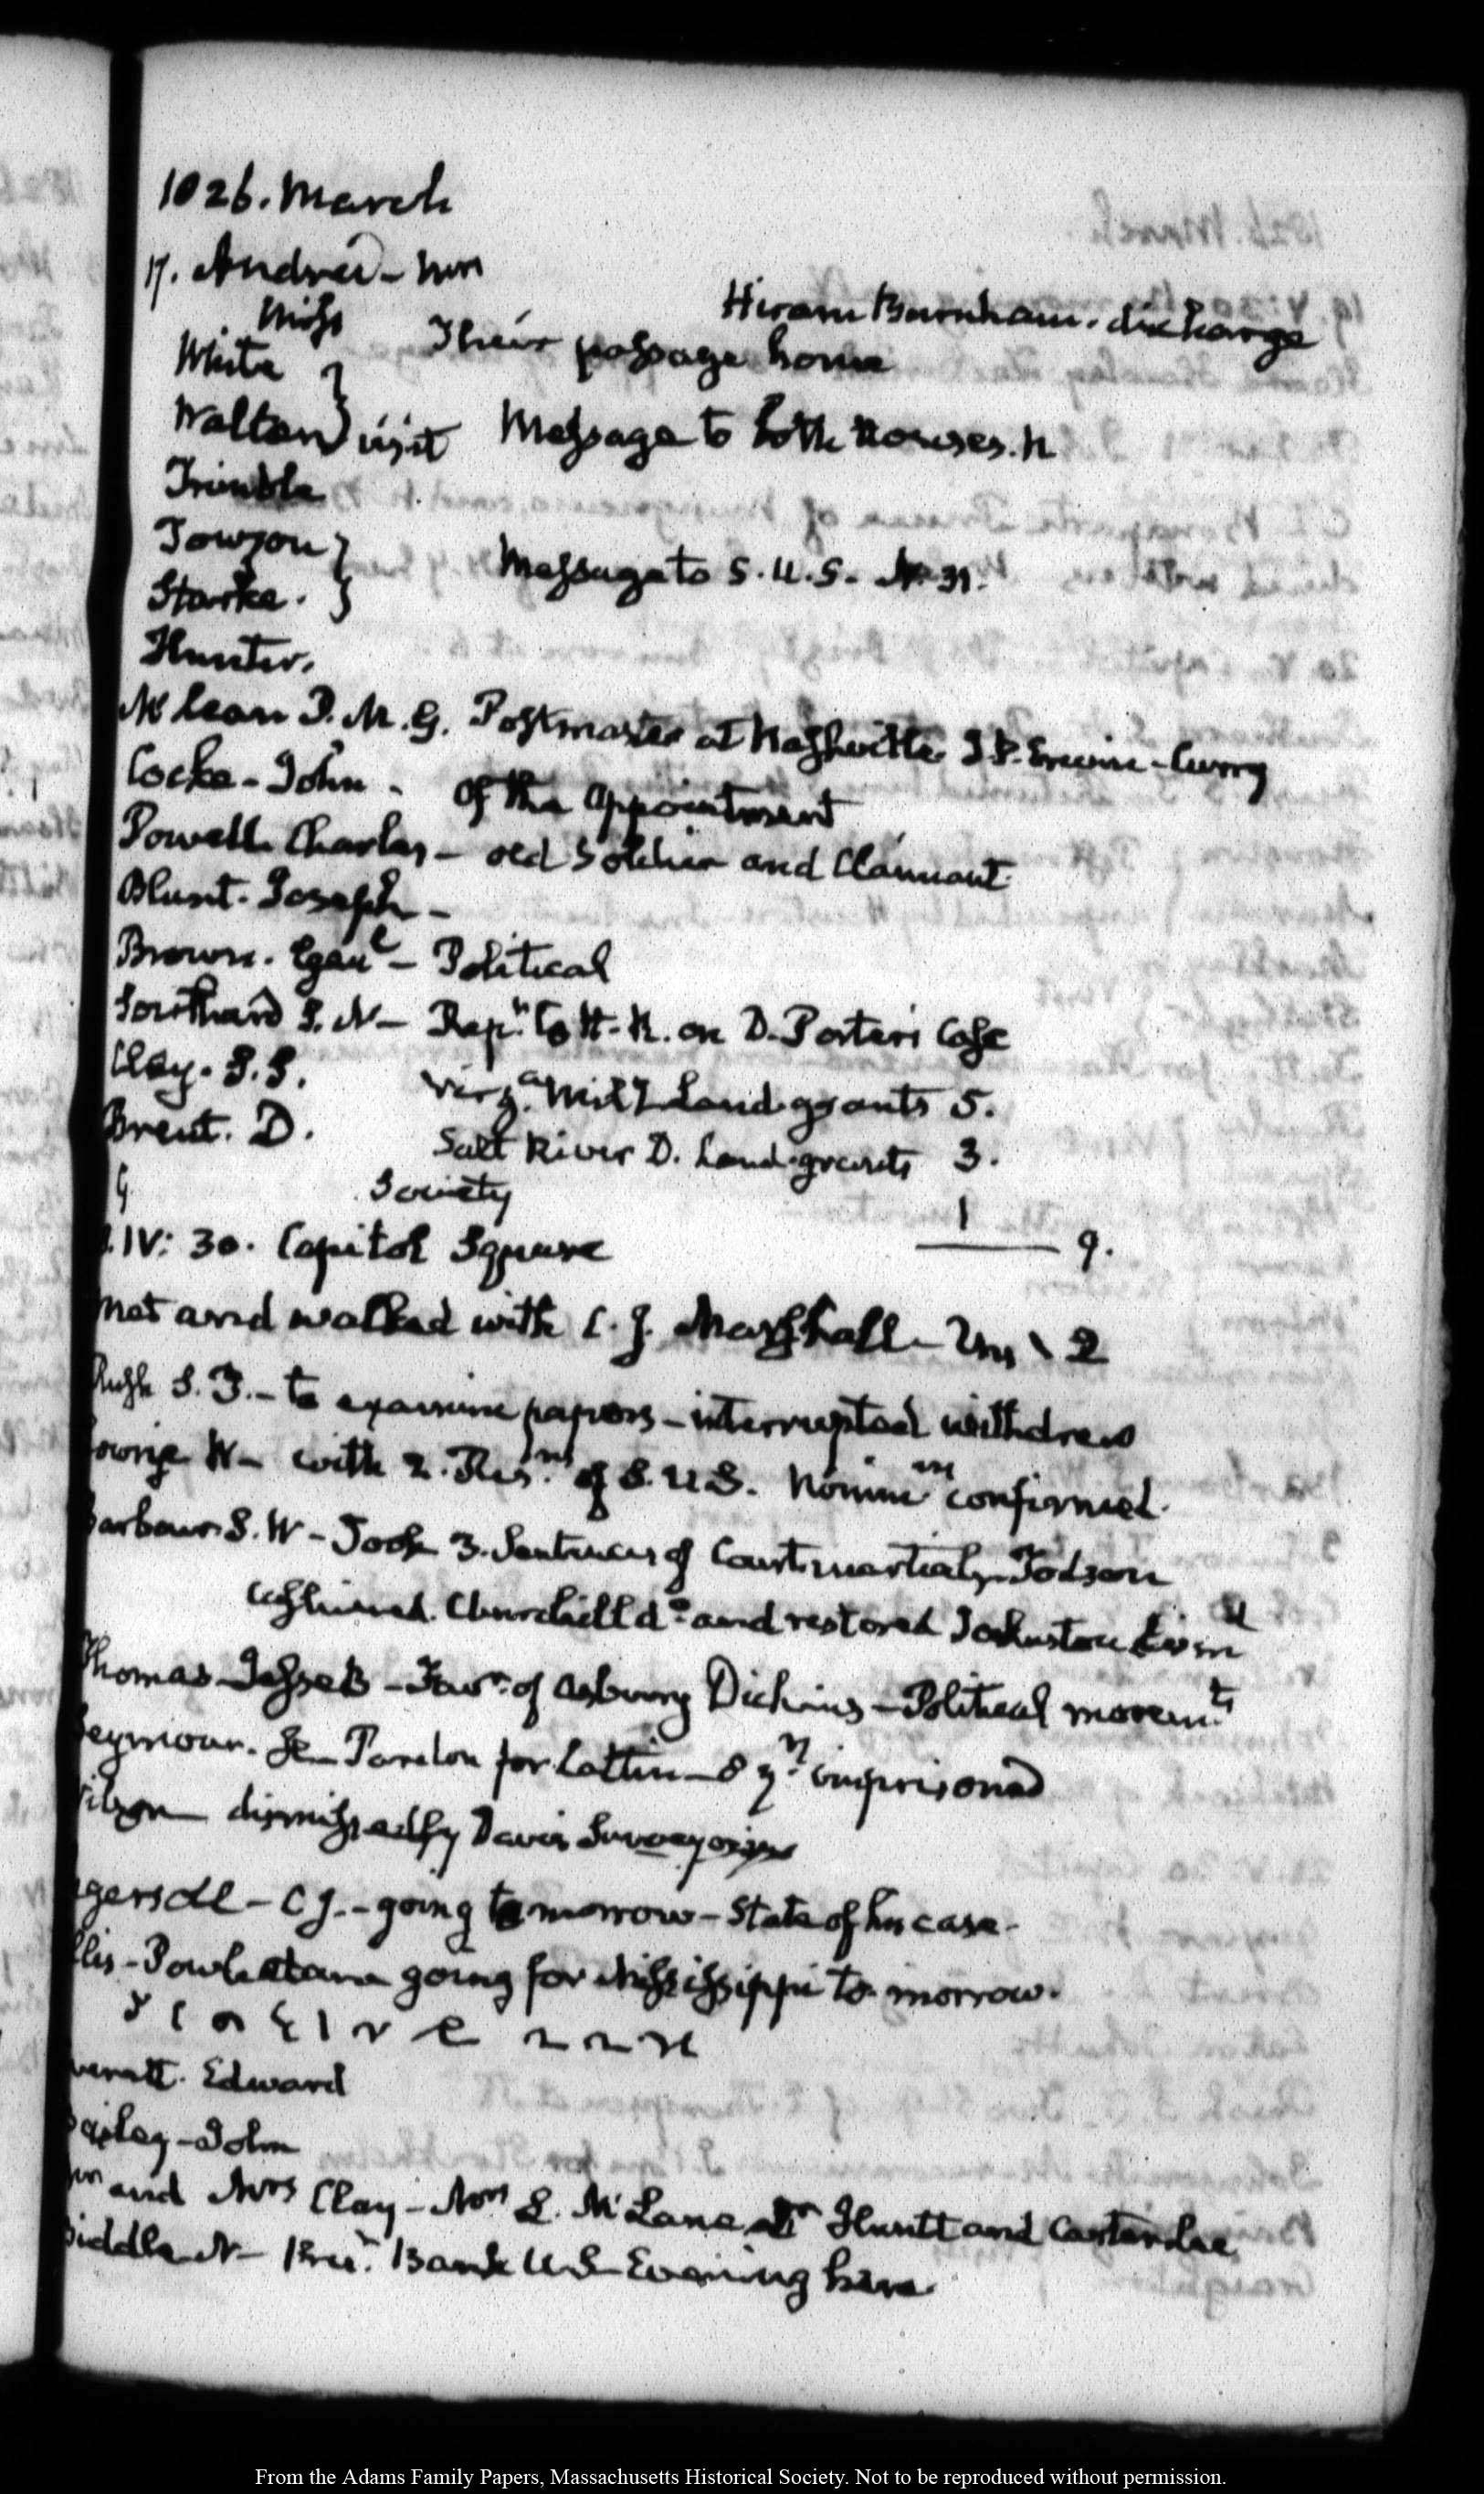 1826. March
17. Andrei - Mrs
Miss Their passage home Hiram Burnham. discharge
White }
Walton } visit Message to both Houses. H
Trimble
Towson }
Starke. } Message to S.U.S. N 31.
Hunter.
McLean P.M.G. Postmaster at Nashville J.P. Erwin - Curry
Cocke - John - of the appointment
Powell. Charles - old Soldier and Claimant
Blunt. Joseph -
Brown. Genl - Political
Southard S. N - Rep. to H. R. on D. Porter's Case
Clay. S.S. Virga. Mily Land-grants 5.
Brent. D. Salt River D. Land-grants 3.
Society 1
IV: 30. Capitol Square 9.
met and walked with C. J. Marshall - 2
Rush S. T. - to examine papers - interrupted withdrew
Lowrie W - with 2. Resns of S.U.S. Nominns confirmed.
Barbour S. W - Took 3. Sentences of Courts martial - Dodson
cashiered. Churchill do. and restored Johnston
Thomas - Jesse B - of Asbury Dickins - Political movemts
Seymour. Pardon for Lattin - 8 imprisoned
dismissed by Davis Surveyor
Ingersoll - C J. - going to morrow - State of his case -
Ellis - Powhatan going for Mississippi to-morrow.
Everett. Edward
Bailey - John
and Mrs Clay - Mrs L. McLane Huntt and
Biddle N - Bank US - Evening here.
From the Adams Family Papers, Massachusetts Historical Society. Not to be reproduced without permission.